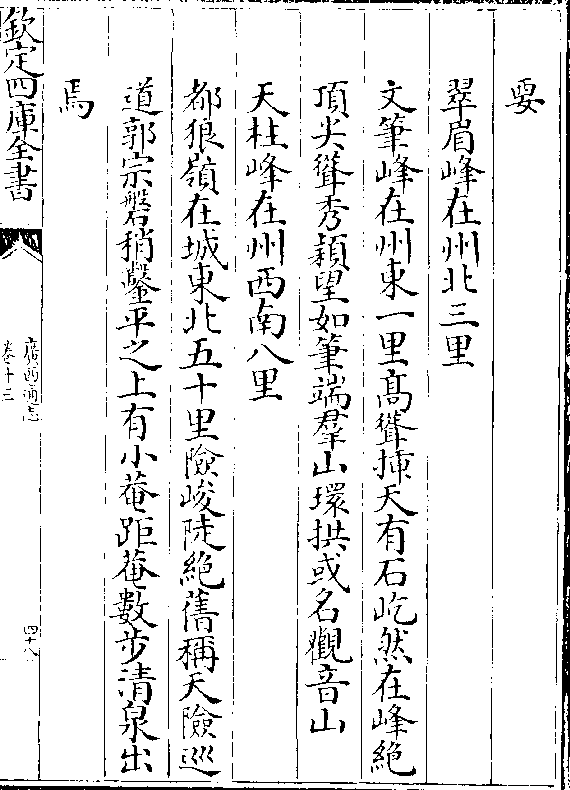 要
翠眉峰在州北三里
文筆峰在州東一里髙聳揷天有石屹然在峰絶
頂尖聳秀穎望如筆端羣山環拱或名觀音山
天柱峰在州西南八里
都狼嶺在城東北五十里險峻陡絶舊稱天險巡
道郭宗磐稍鑿平之上有小菴距菴數步清泉出
焉
欽定四庫全書
廣西通志
卷十三
四十八